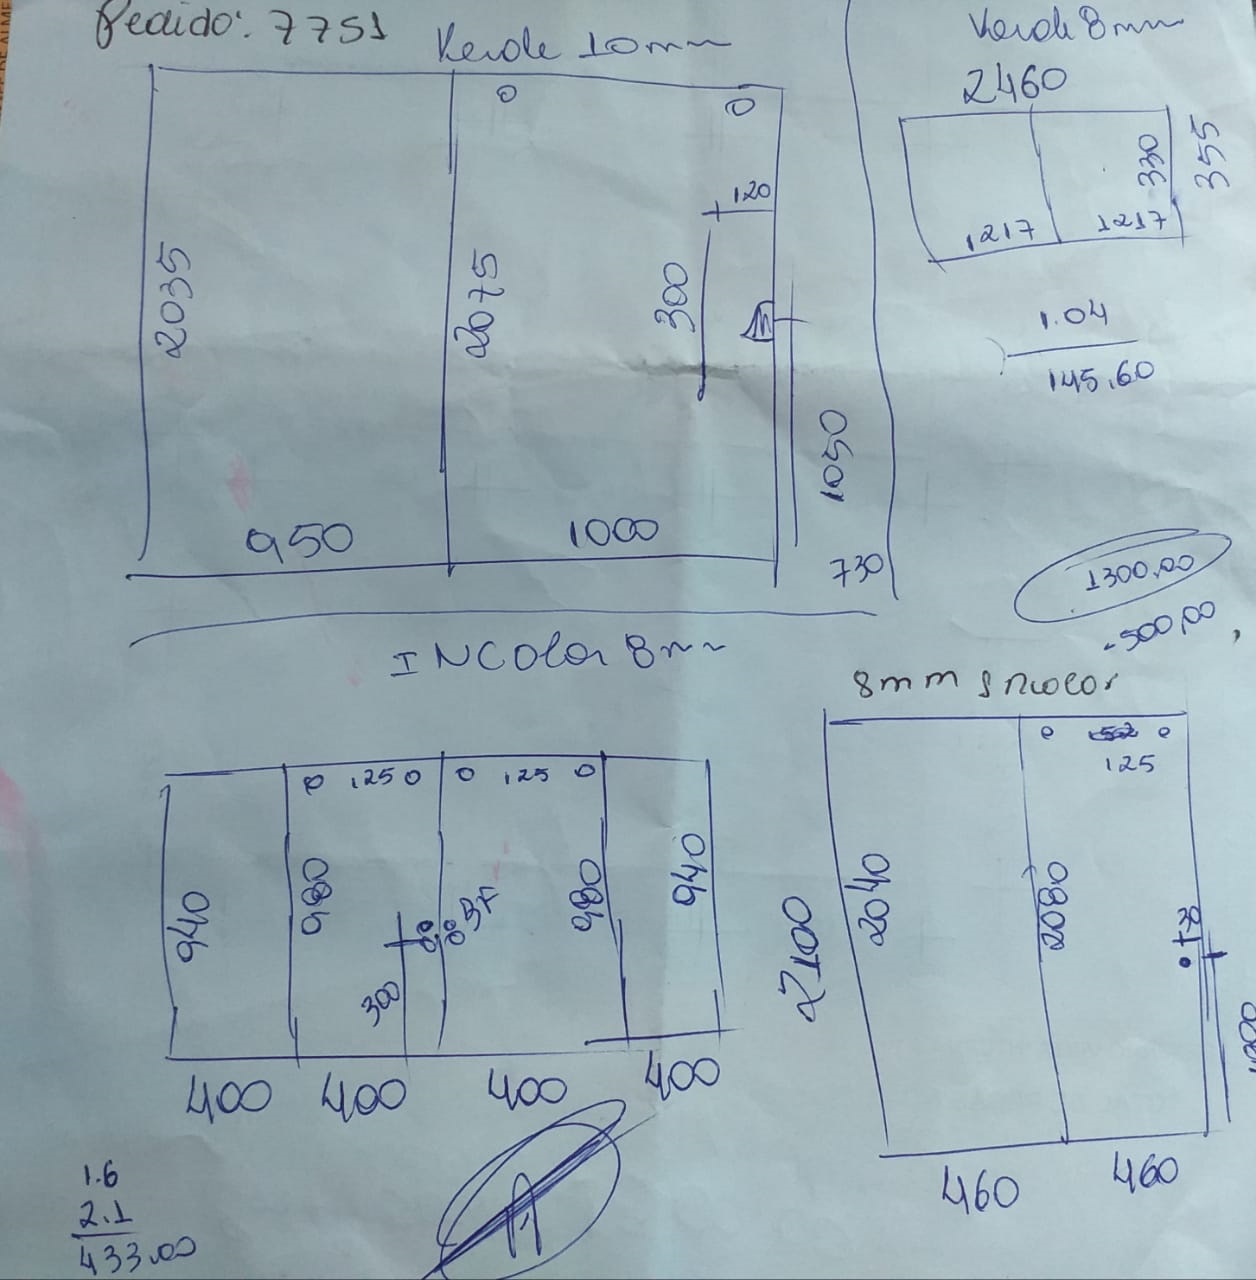 Pedido: 7751
Verde 10mm
2035
2075
120
300
1050
950
1000
730
Verde 8mm
2460
330
355
1217
1217
1.04
145.60
1300,00
-500,00
INColor 8mm
125
125
940
980
980
940
300
400
400
400
400
8mm Incolor
125
2100
2040
2080
460
460
1.6
2.1
433.00